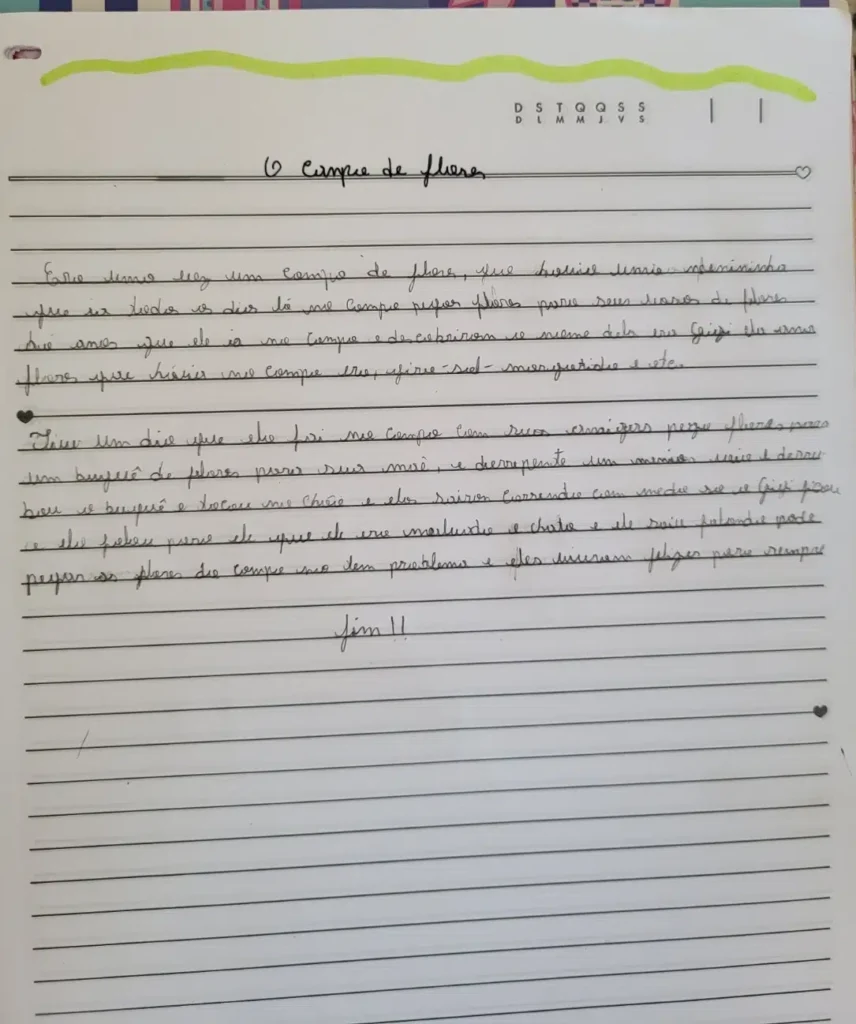 D S T Q Q S S
D L M M J V S
O campo de flores
Era uma vez um campo de flores, que havia uma menininha
que ia todos os dias lá no campo pegar flores para seus vasos de flores
que ela ia no campo e descobriram o nome dela era Gigi
flores que havia no campo era, gira-sol- margaridas e etc.
Teve um dia que ela foi no campo com suas amigas pegar flores para
um buquê de flores para sua mãe, e derrepente um menino veio e derru
bou o buquê e tocou no chão e elas sairon correndo com medo so a Gigi ficou
e ela falou para ele que ele era malvado e chato e ele saiu falando pode
pegar as flores do campo não tem problema e eles viveram felizes para sempre
fim!!